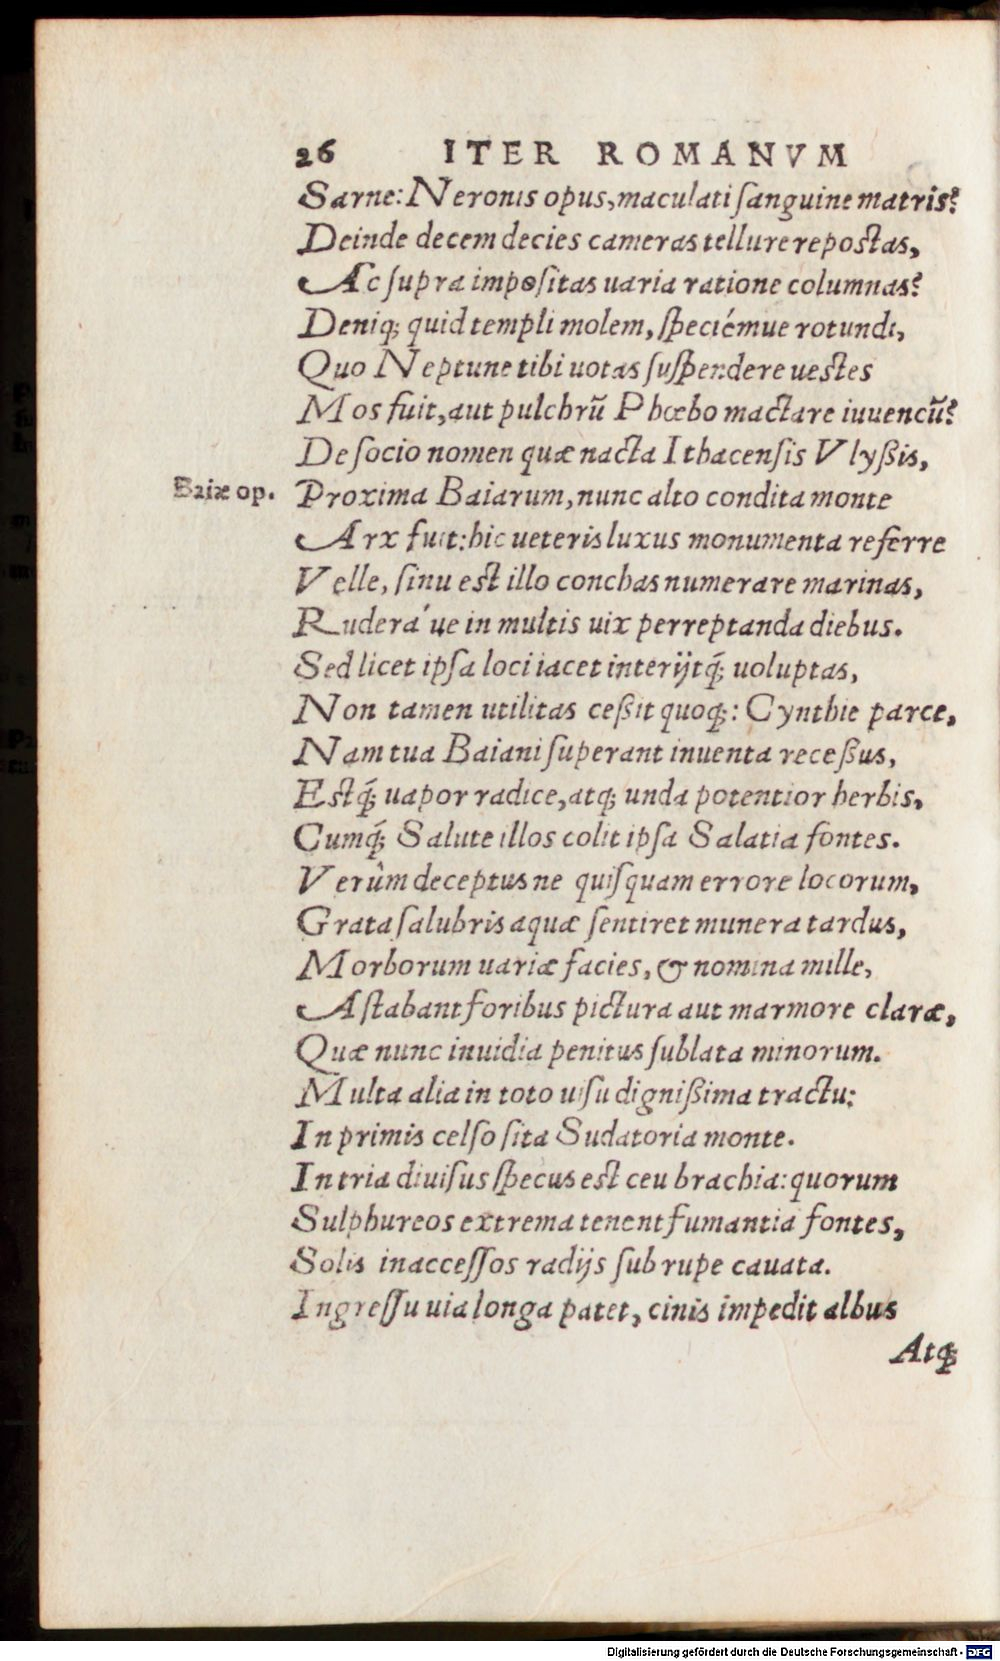 26 ITER ROMANVM
Sarne: Neronis opus, maculati ſanguine matris?
Deinde decem decies cameras tellure repostas,
Ac ſupra impoſitas uaria ratione columnas?
Deniq; quid templi molem, ſpeciémue rotundi,
Quo Neptune tibi uotas ſuſpendere uestes
Mos fuit, aut pulchrũ Phœbo mactare iuuencũ?
De ſocio nomen quæ nacta Ithacenſis Vlyßis,
Baiæ op. Proxima Baiarum, nunc alto condita monte
Arx fuit: hic ueteris luxus monumenta referre
Velle, ſinu est illo conchas numerare marinas,
Ruderá ue in multis uix perreptanda diebus.
Sed licet ipſa loci iacet interijtq́; uoluptas,
Non tamen utilitas ceßit quoq;: Cynthie parce,
Nam tua Baiani ſuperant inuenta receßus,
Estq́; uapor radice, atq; unda potentior herbis,
Cumq́; Salute illos colit ipſa Salatia fontes.
Verûm deceptus ne quiſquam errore locorum,
Grata ſalubris aquæ ſentiret munera tardus,
Morborum uariæ facies, & nomina mille,
Aſtabant foribus pictura aut marmore claræ,
Quæ nunc inuidia penitus ſublata minorum.
Multa alia in toto uiſu digniſſima tractu:
In primis celſo ſita Sudatoria monte.
In tria diuiſus ſpecus est ceu brachia: quorum
Sulphureos extrema tenent fumantia fontes,
Solis inacceſſos radijs ſub rupe cauata.
Ingreſſu uia longa patet, cinis impedit albus
Atq;
Digitalisierung gefördert durch die Deutsche Forschungsgemeinschaft - DFG